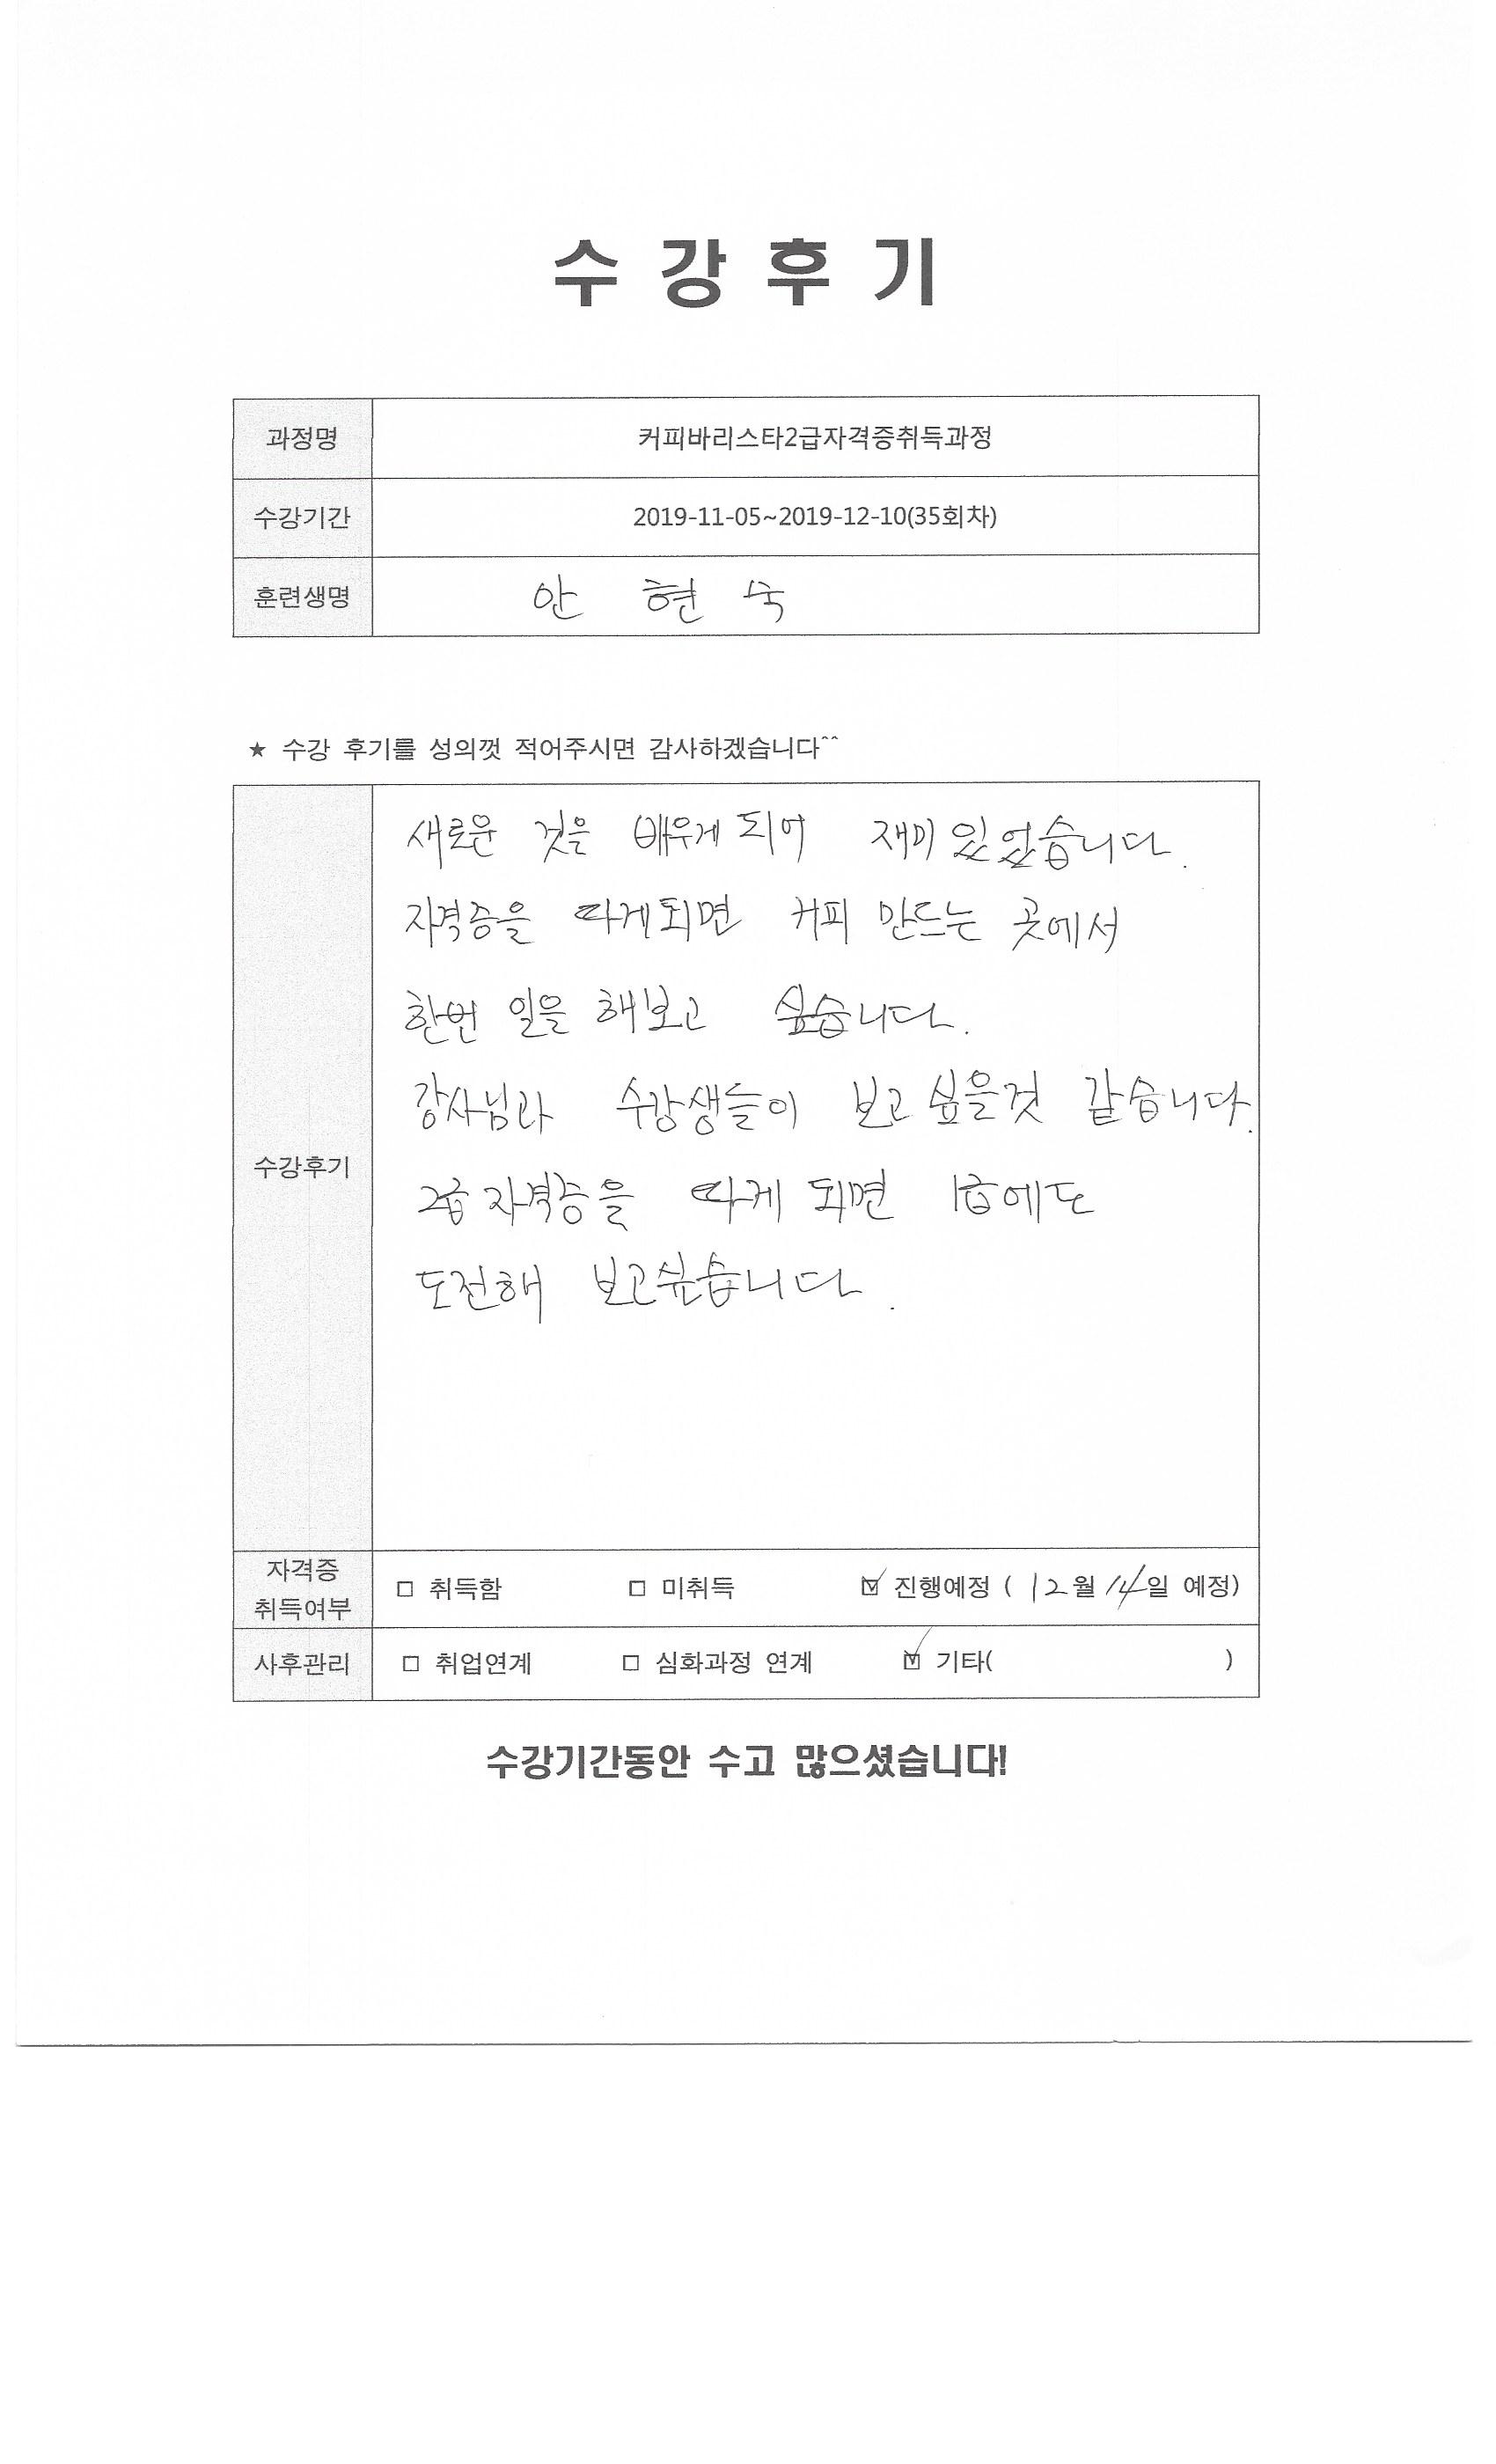 수 강 후 기
과정명 커피바리스타2급자격증취득과정
수강기간 2019-11-05~2019-12-10(35회차)
훈련생명 안 현 숙
★ 수강 후기를 성의껏 적어주시면 감사하겠습니다^^
새로운 것을 배우게 되어 재미 있었습니다.
자격증을 따게되면 커피 만드는 곳에서
한번 일을 해보고 싶습니다.
강사님과 수강생들이 보고 싶을것 같습니다.
수강후기
2급 자격증을 따게 되면 1급에도
도전해 보고싶습니다.
자격증
취득여부
□ 취득함 □ 미취득 ☑ 진행예정 ( 12월 14일 예정)
사후관리 □ 취업연계 □ 심화과정 연계 ☑ 기타( )
수강기간동안 수고 많으셨습니다!